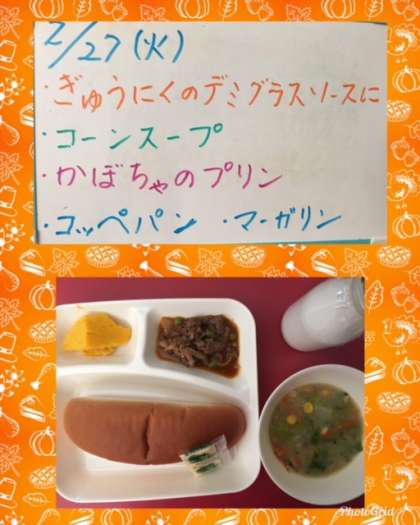 2/27(火)
・ぎゅうにくのデミグラスソースに
・コーンスープ
・かぼちゃのプリン
・コッペパン ・マーガリン
PhotoGrid